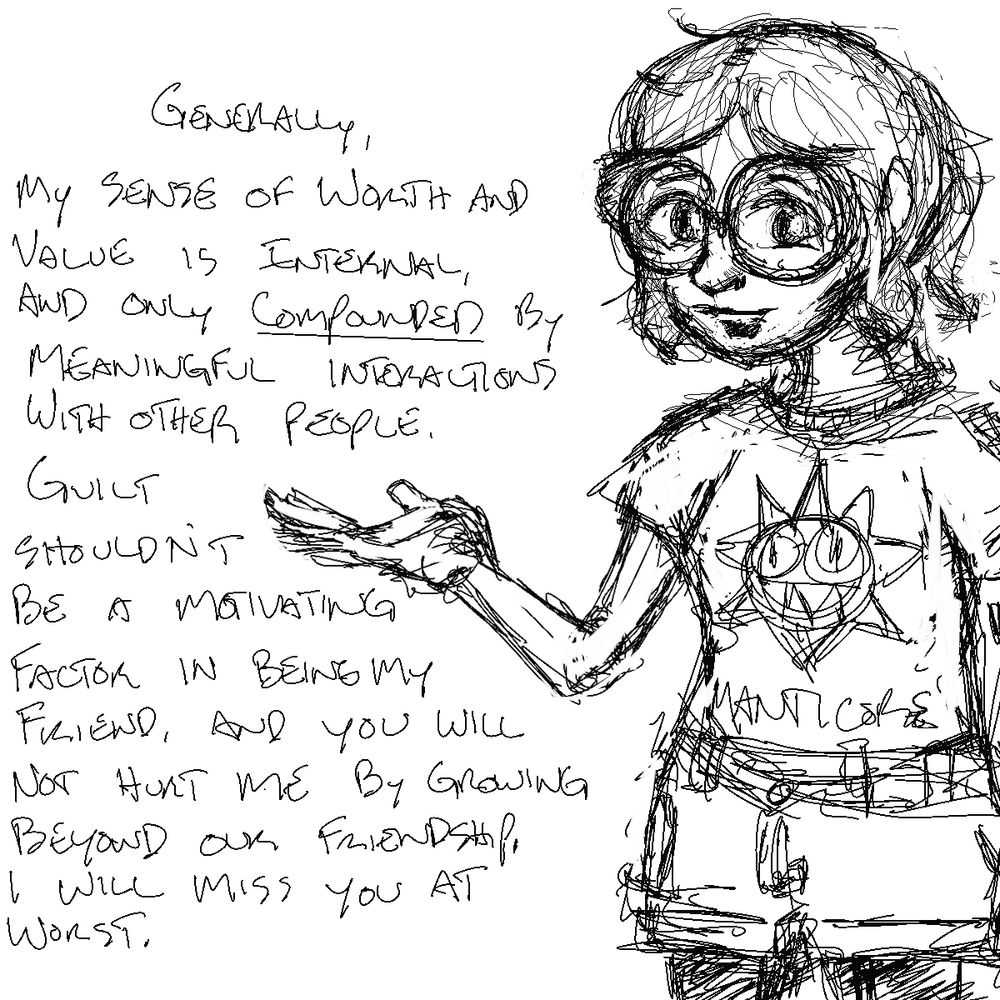 GENERALLY,
MY SENSE OF WORTH AND
VALUE IS INTERNAL,
AND ONLY COMPOUNDED BY
MEANINGFUL INTERACTIONS
WITH OTHER PEOPLE.
GUILT
SHOULDN'T
BE A MOTIVATING
FACTOR IN BEING MY
FRIEND. AND YOU WILL
NOT HURT ME BY GROWING
BEYOND OUR FRIENDSHIP.
I WILL MISS YOU AT
WORST.
MANTICORE